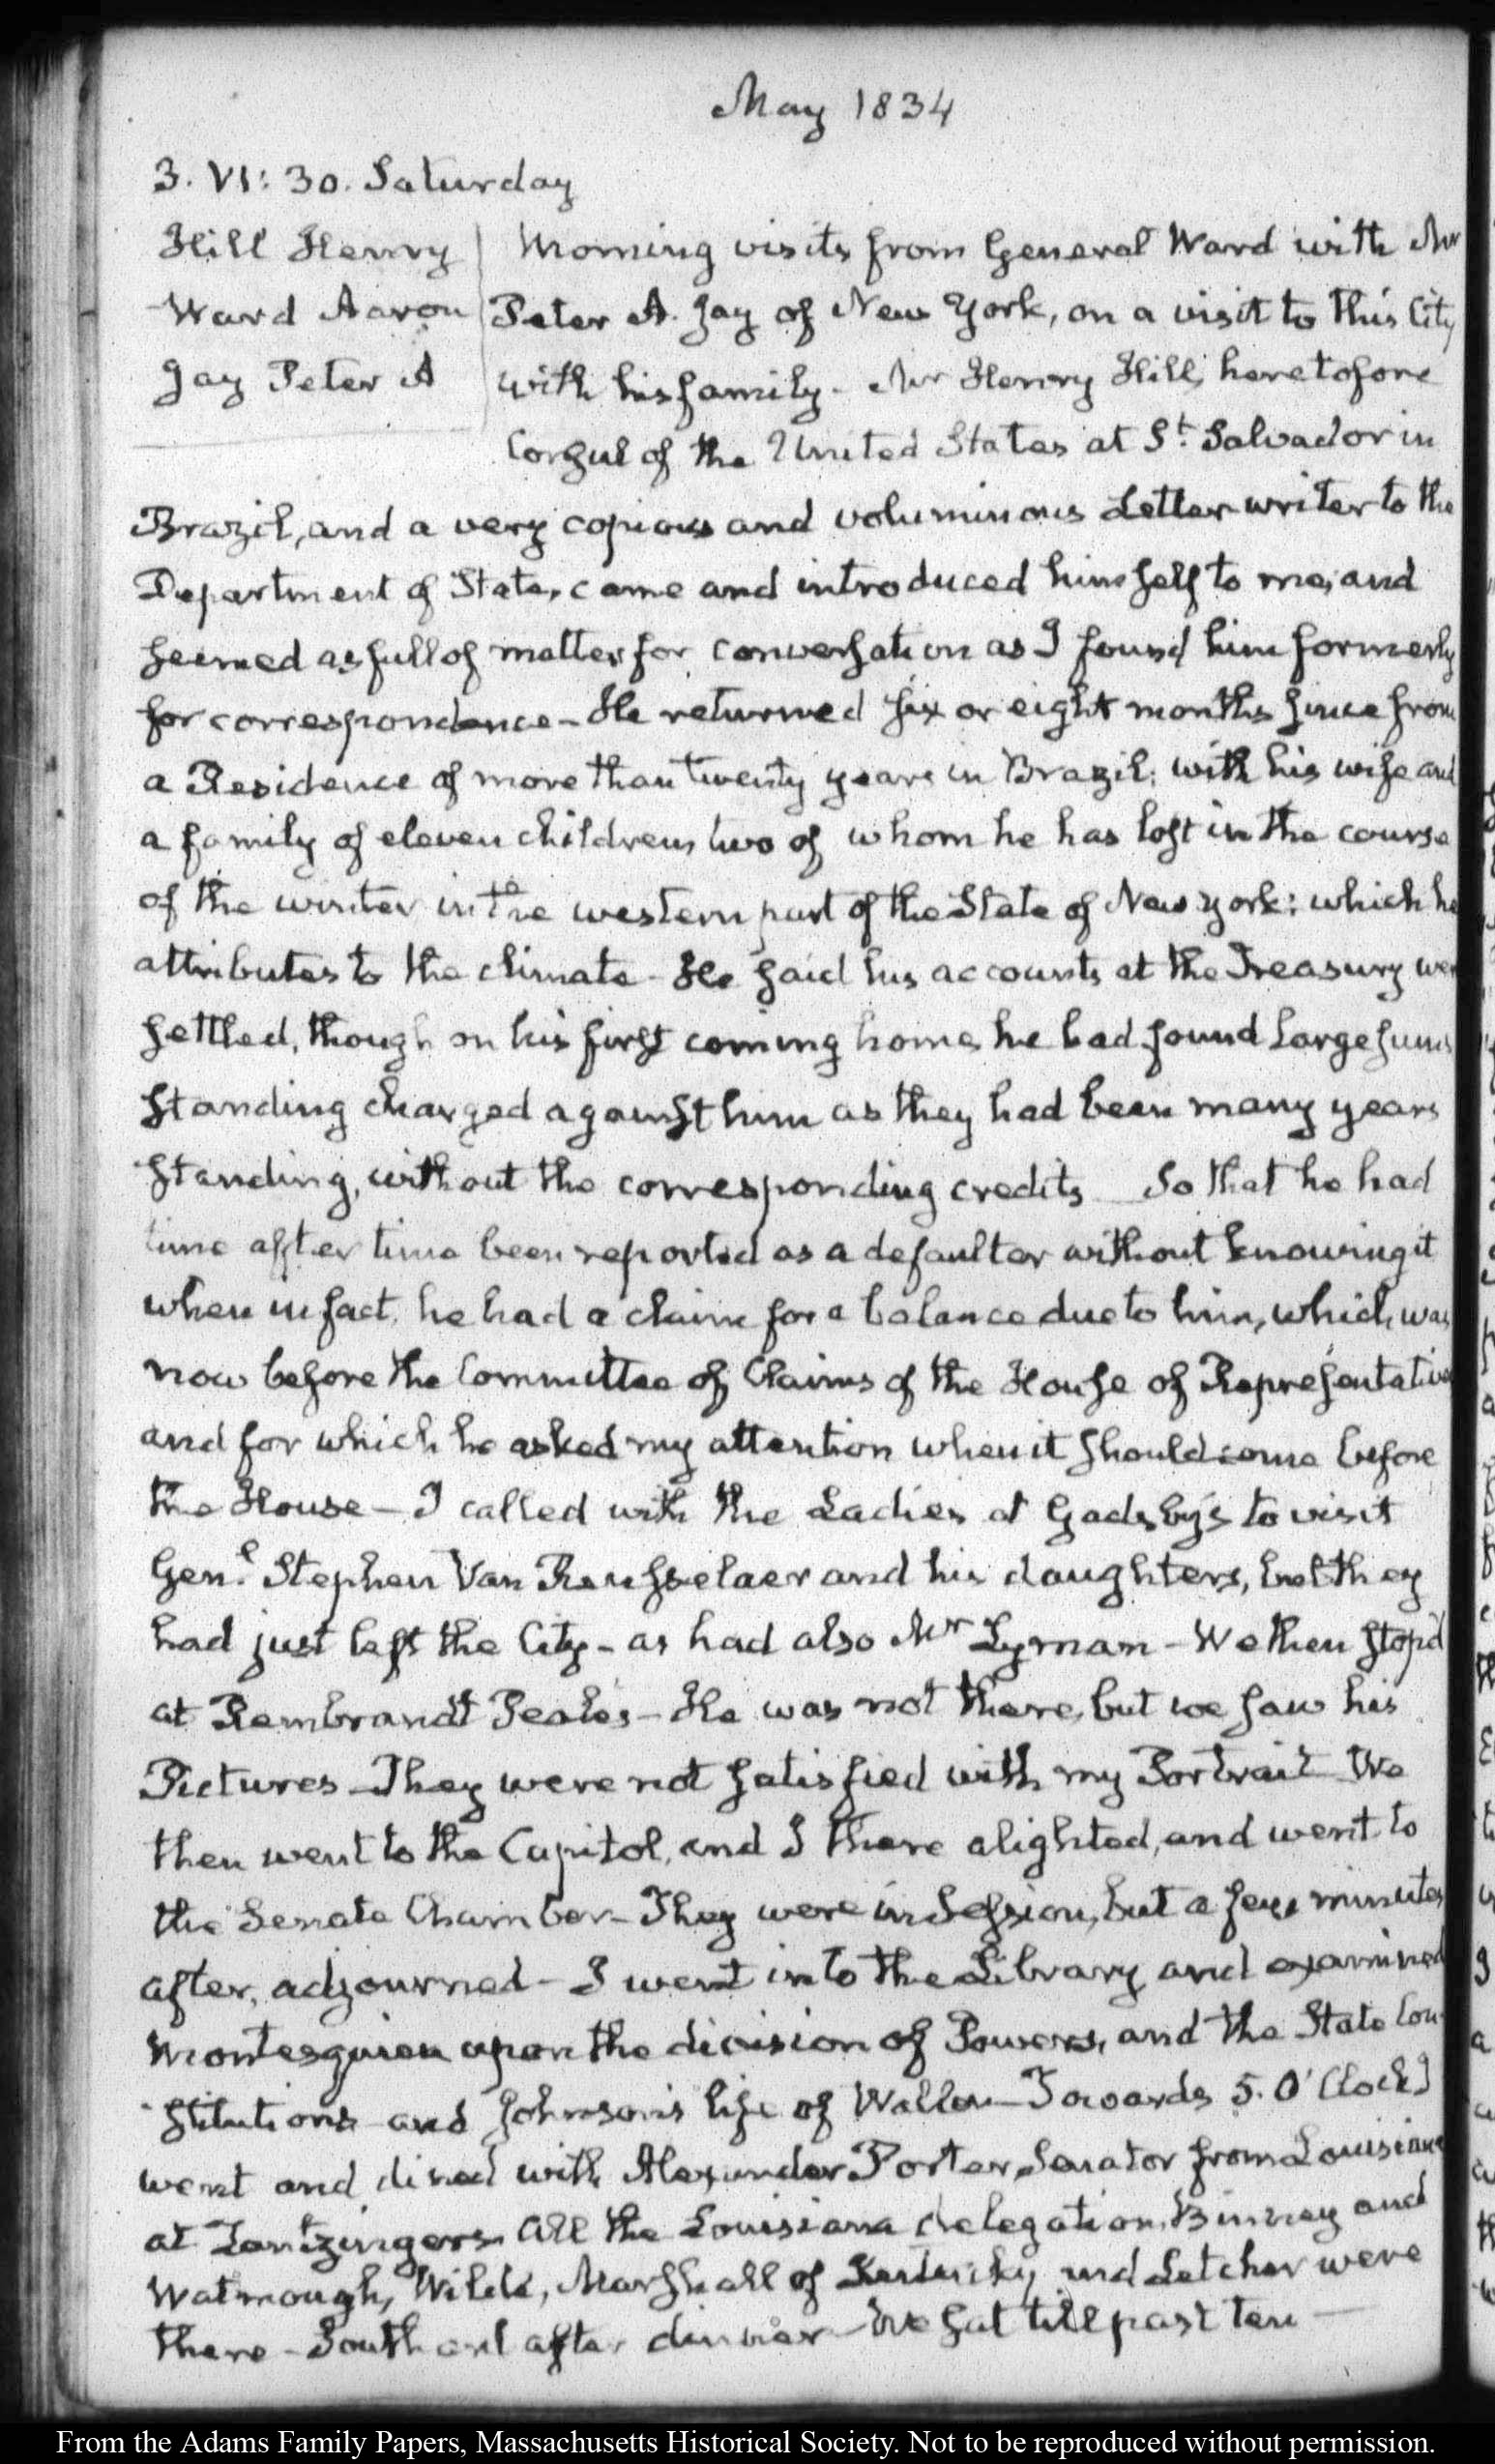 May 1834
3. VI: 30. Saturday
Hill Henry
Ward Aaron
Jay Peter A
Morning visits from General Ward with Mr
Peter A. Jay of New York, on a visit to this City
with his family - Mr Henry Hill, heretofore
Consul of the United States at St. Salvador in
Brazil, and a very copious and voluminous Letter writer to the
Department of State, came and introduced himself to me, and
seemed as full of matter for conversation as I found him formerly
for correspondence - He returned six or eight months since from
a Residence of more than twenty years in Brazil; with his wife and
a family of eleven children, two of whom he has lost in the course
of the winter in the western part of the State of New York: which he
attributes to the climate - He said his accounts at the Treasury were
settled, though on his first coming home, he had found large sums
standing charged against him as they had been many years
standing, without the corresponding credits So that he had
time after time been reported as a defaulter without knowing it
when in fact, he had a claim for a balance due to him, which was
now before the Committee of Claims of the House of Representatives
and for which he asked my attention when it should come before
the House - I called with the Ladies at Gadsby's to visit
Genl. Stephen Van Rensselaer and his daughters, but they
had just left the City - as had also Mr Lyman - We then stop'd
at Rembrandt Peale's - He was not there, but we saw his
Pictures - They were not satisfied with my Portrait We
then went to the Capitol, and I there alighted, and went to
the Senate Chamber - They were in Session, but a few minutes
after, adjourned - I went into the Library and examined
Montesquieu upon the division of Powers, and the State Con-
stitutions and Johnson's life of Waller - Towards 5. O'Clock I
went and dined with Alexander Porter, Senator from Louisiana
at Lantzingers. All the Louisiana delegation, Binney and
Watmough, Wilde, Marshall of Kentucky and Letcher were
there - Southard after dinner - We sat till past ten -
From the Adams Family Papers, Massachusetts Historical Society. Not to be reproduced without permission.